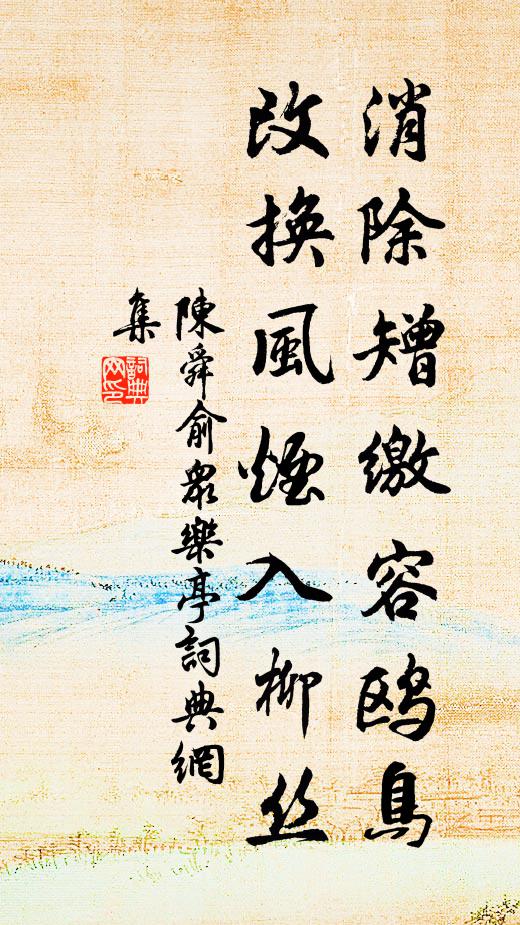 消除矰繳容鸥鳥
改換風煙入柳丝
陳舜俞衆樂亭詞典網
集
詞典網印